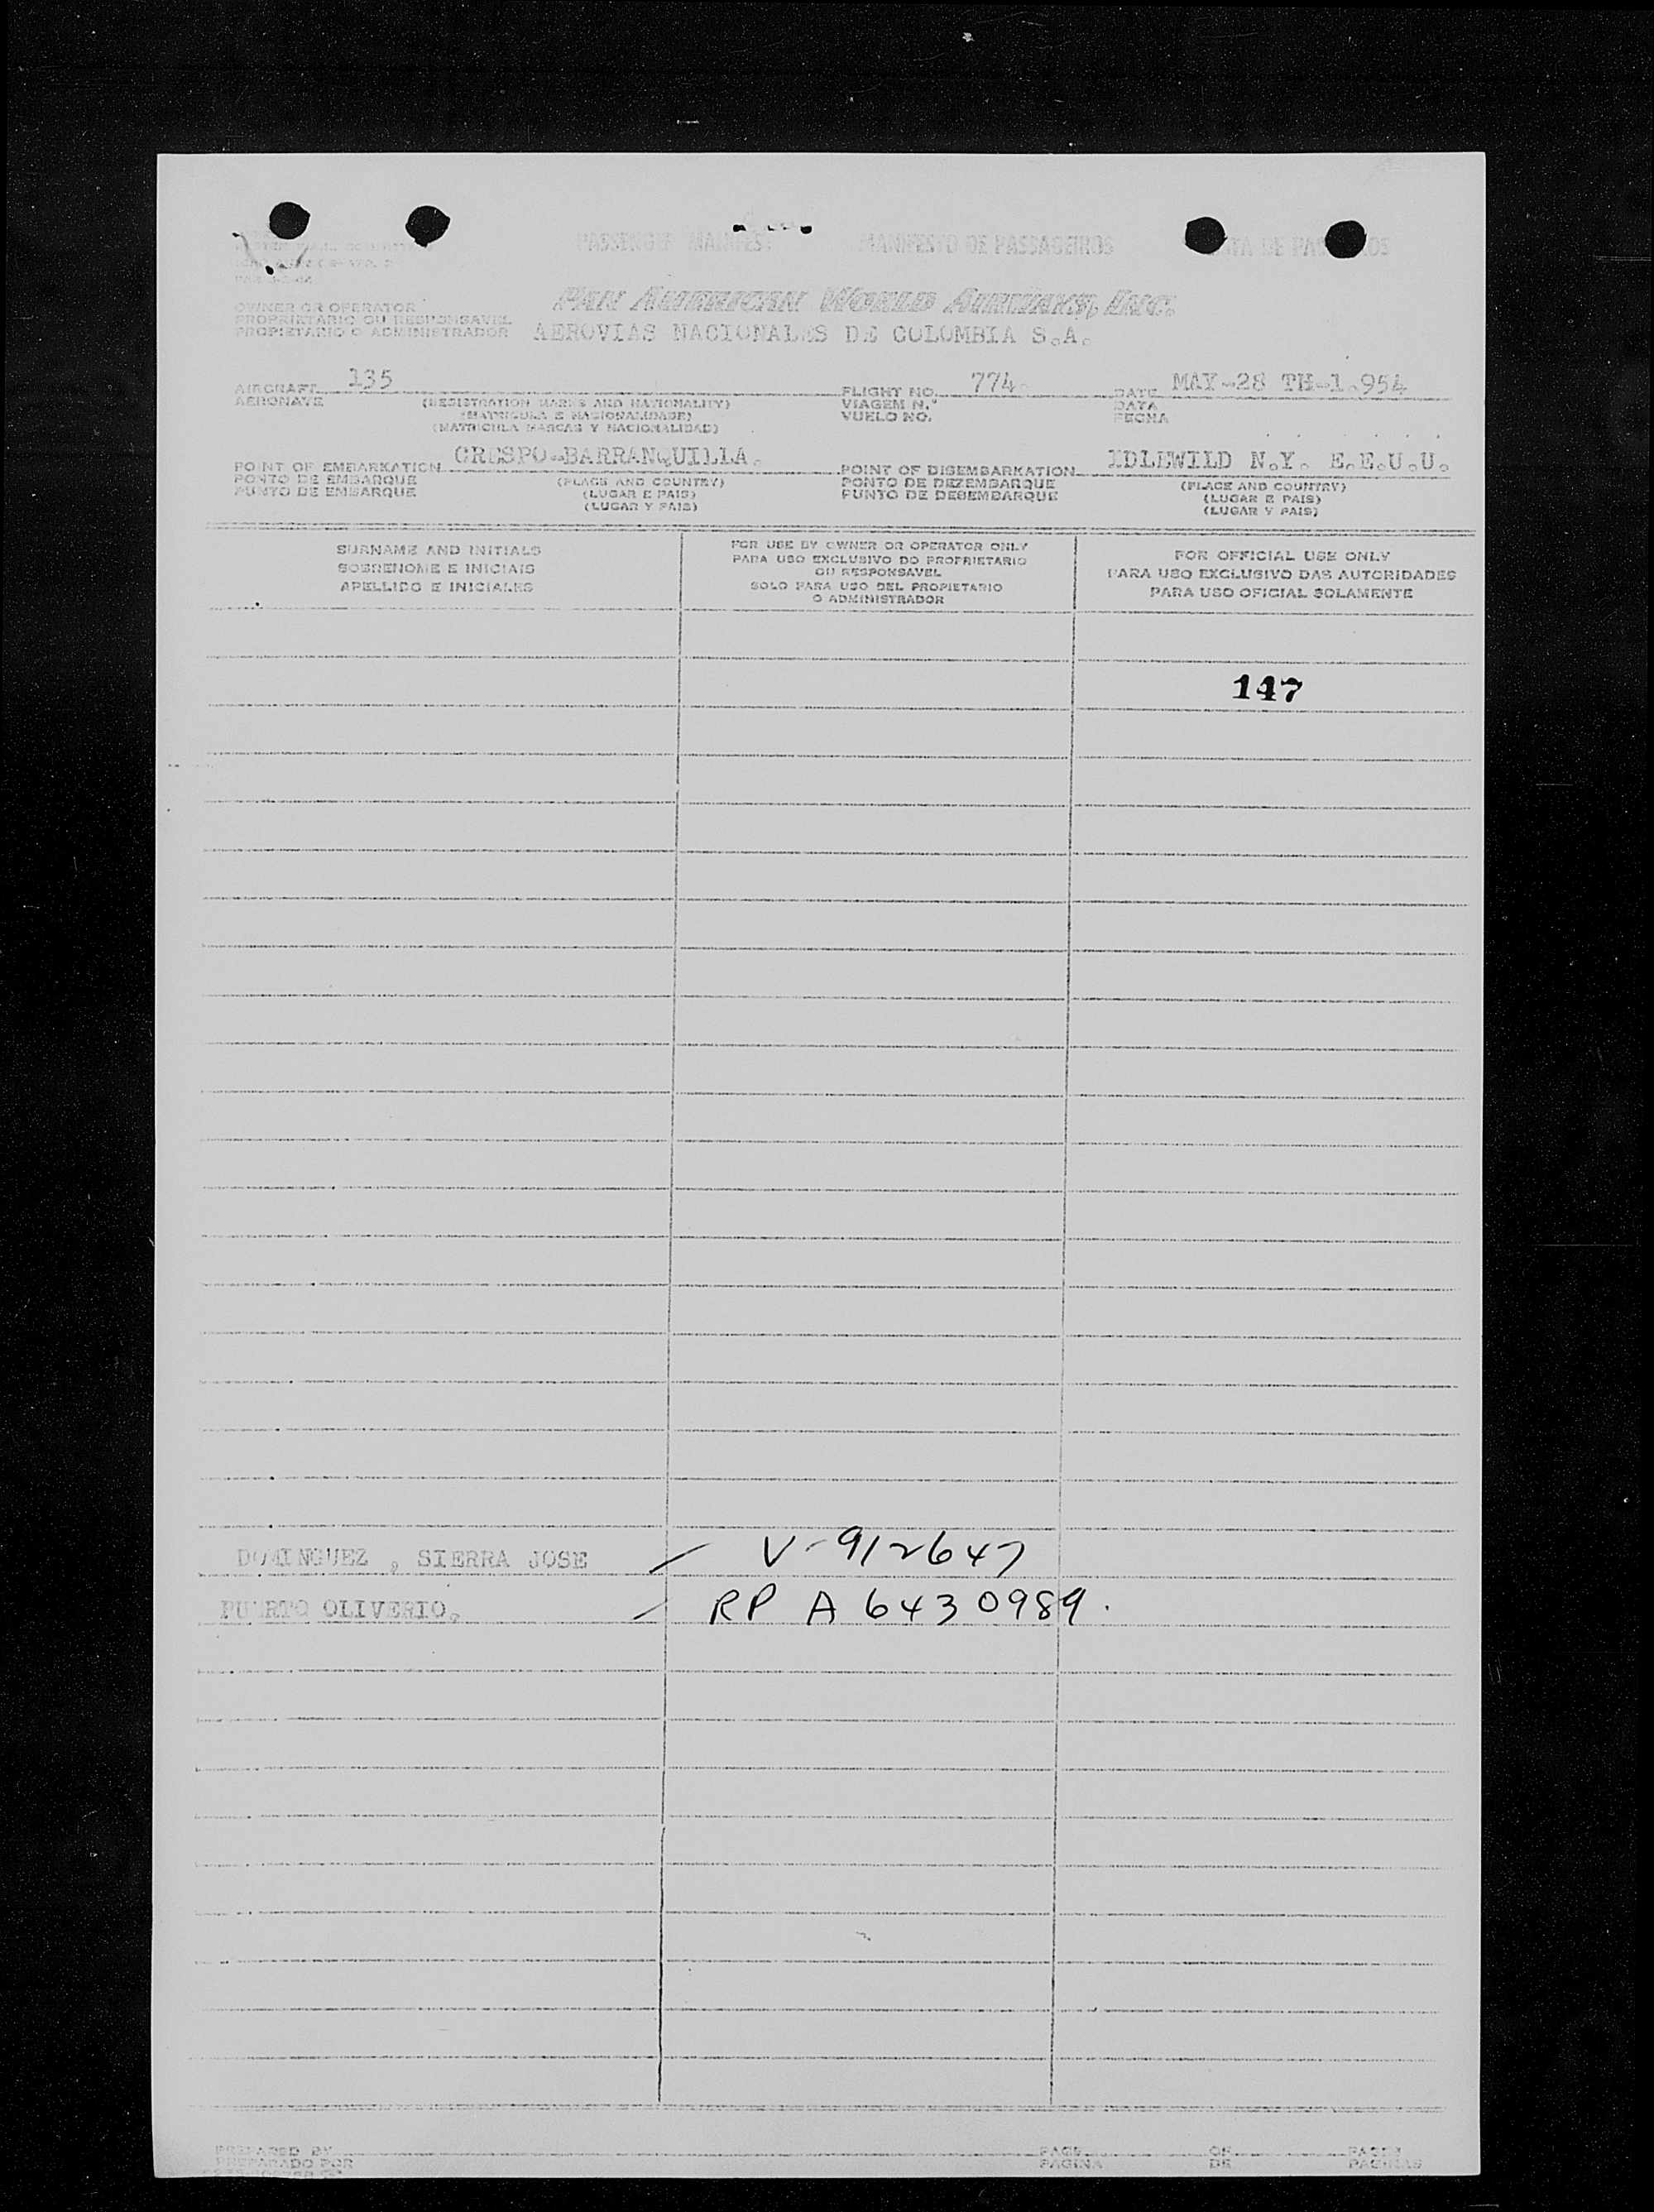 PASSENGER MANIFEST MANIFESTO DE PASSAGEIROS LISTA DE PASAJEROS
PAN AMERICAN WORLD AIRWAYS, INC.
OWNER OR OPERATOR
PROPRIETARIO OU RESPONSAVEL
PROPIETARIO O ADMINISTRADOR
AEROVIAS NACIONALES DE COLOMBIA S.A.
AIRCRAFT 135
AERONAVE
(REGISTRATION MARKS AND NATIONALITY)
(MATRICULA E NACIONALIDADE)
(MATRICULA MARCAS Y NACIONALIDAD)
FLIGHT NO. 774
VIAGEM N.º
VUELO NO.
DATE MAY-28 TH-1.954
DATA
FECHA
POINT OF EMBARKATION CRESPO-BARRANQUILLA.
PONTO DE EMBARQUE
PUNTO DE EMBARQUE
(PLACE AND COUNTRY)
(LUGAR E PAIS)
(LUGAR Y PAIS)
POINT OF DISEMBARKATION IDLEWILD N.Y. E.E.U.U.
PONTO DE DEZEMBARQUE
PUNTO DE DESEMBARQUE
(PLACE AND COUNTRY)
(LUGAR E PAIS)
(LUGAR Y PAIS)
SURNAME AND INITIALS
SOBRENOME E INICIAIS
APELLIDO E INICIALES
FOR USE BY OWNER OR OPERATOR ONLY
PARA USO EXCLUSIVO DO PROPRIETARIO
OU RESPONSAVEL
SOLO PARA USO DEL PROPIETARIO
O ADMINISTRADOR
FOR OFFICIAL USE ONLY
PARA USO EXCLUSIVO DAS AUTORIDADES
PARA USO OFICIAL SOLAMENTE
147
DOMINGUEZ , SIERRA JOSE V-912647
PUERTO OLIVERIO. RP A 6430989.
PREPARED BY
PREPARADO POR
PAGE OF PAGES
PAGINA DE PAGINAS